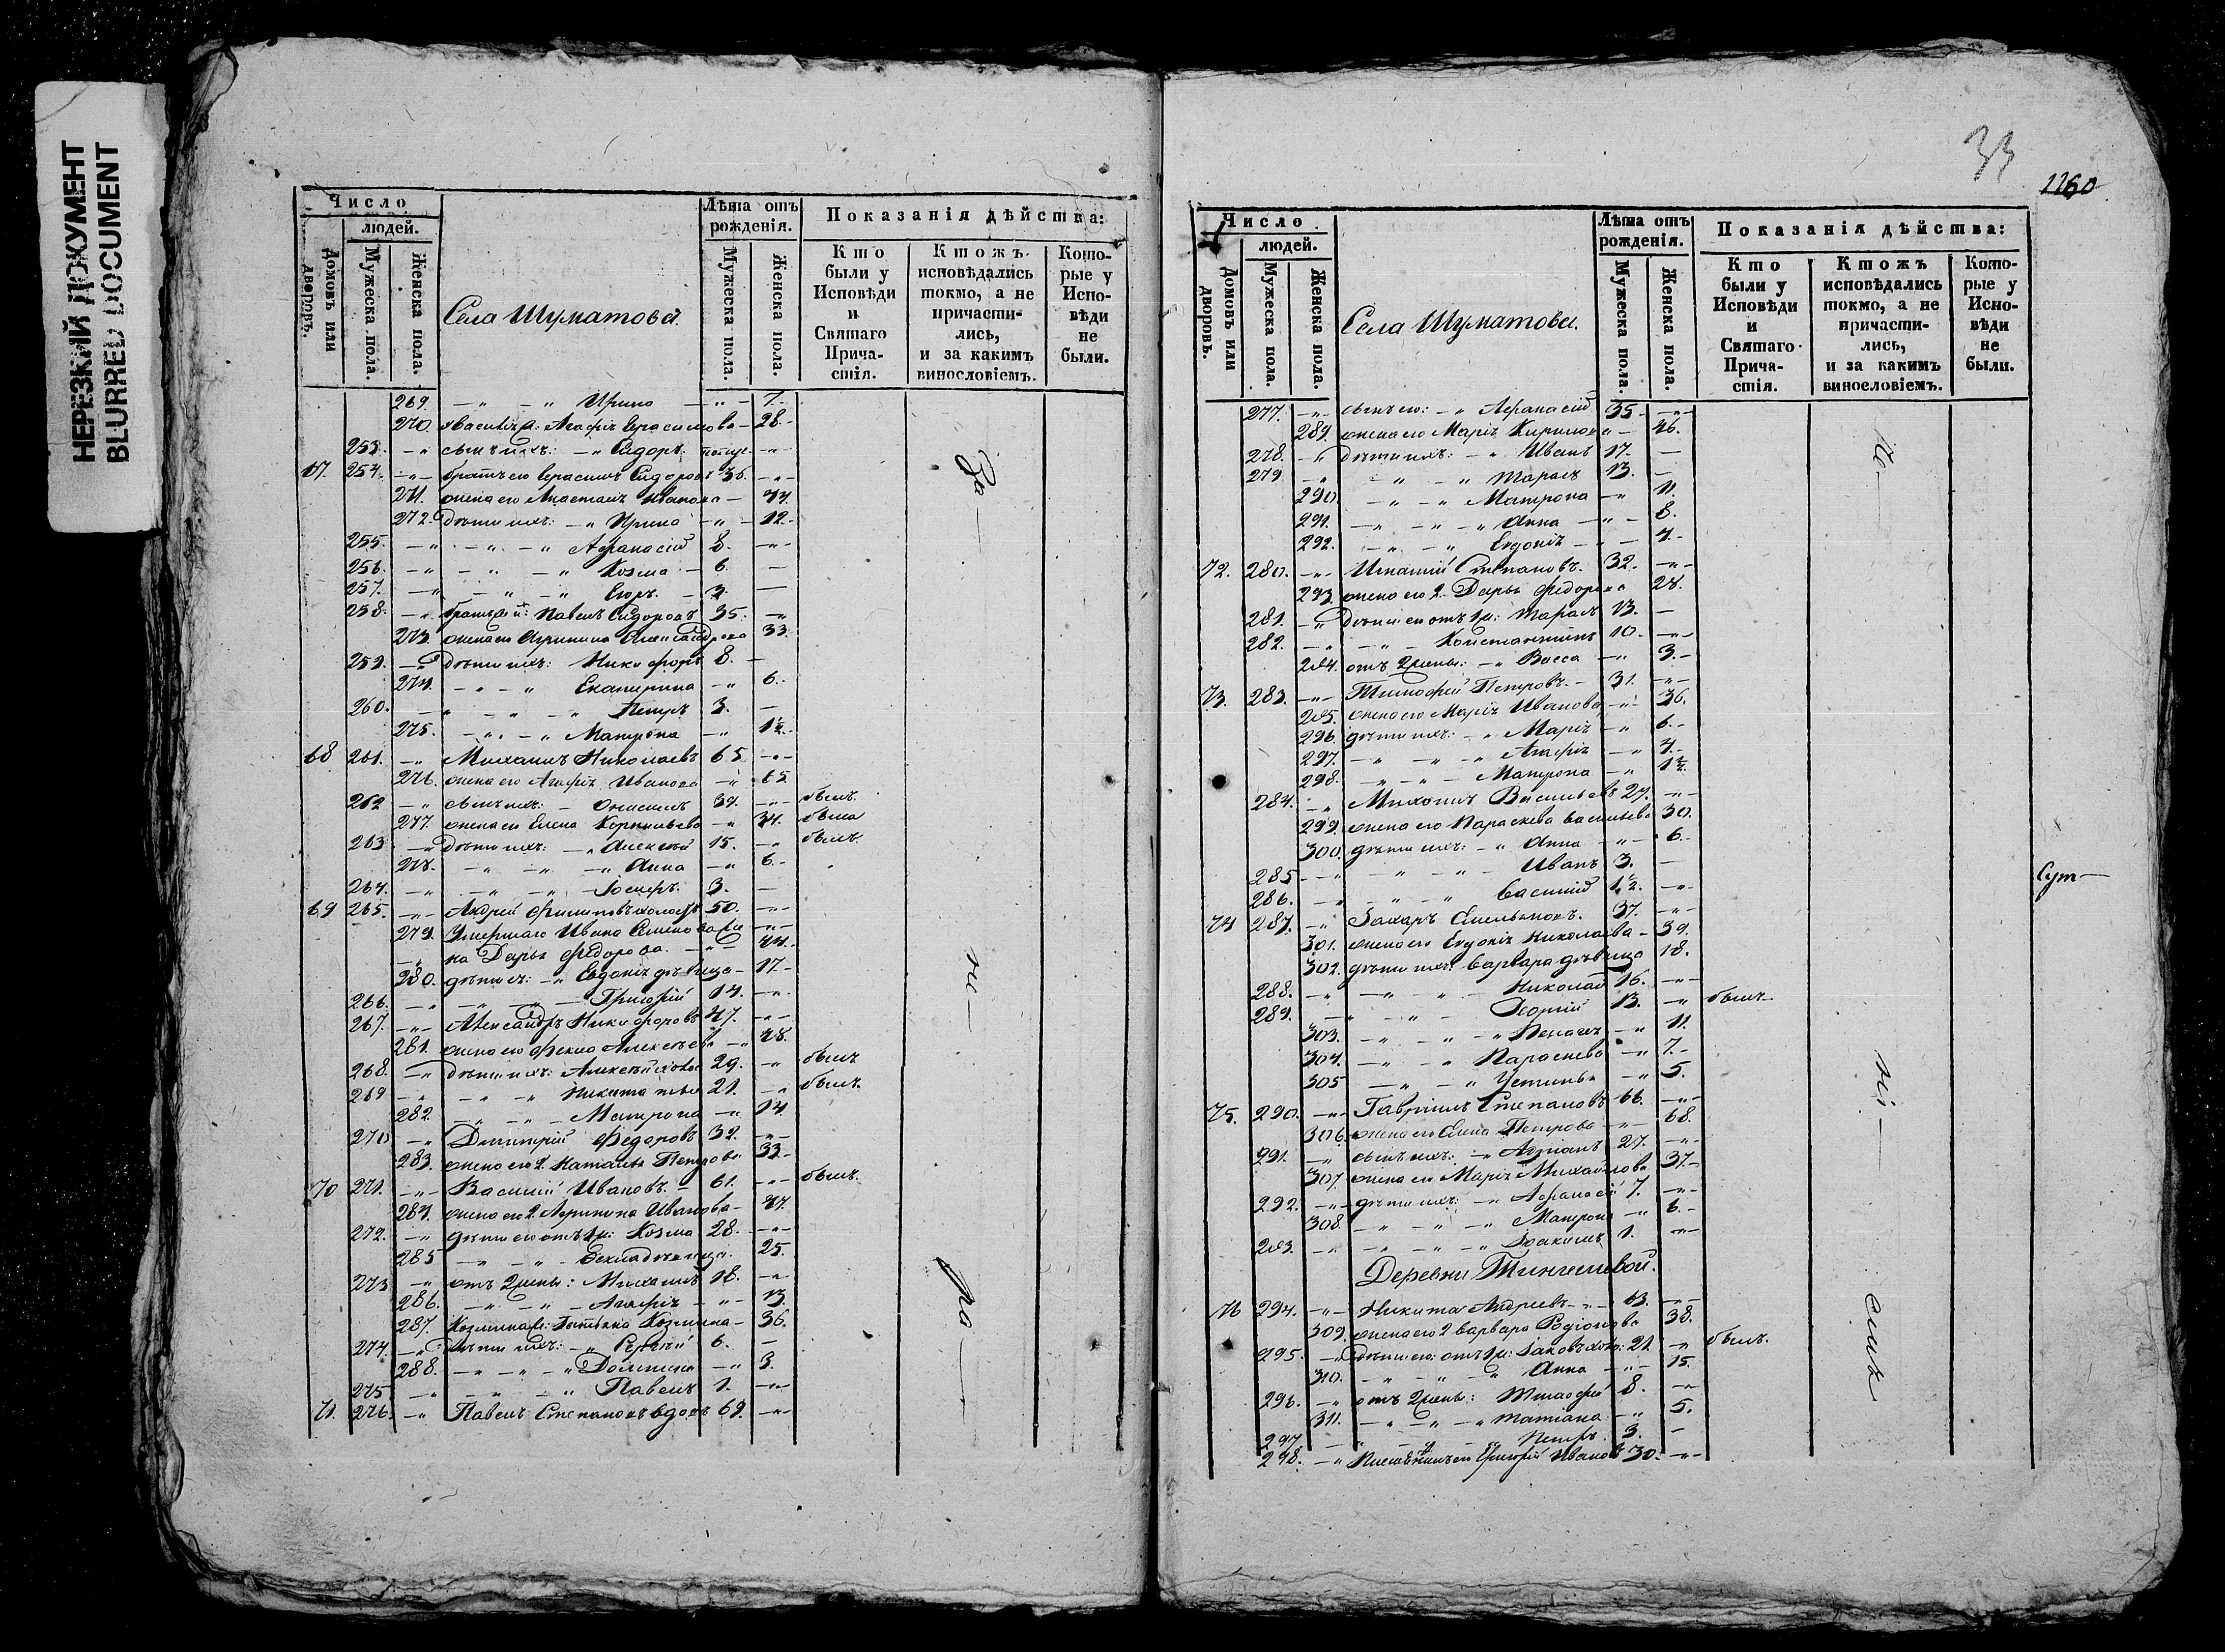 НЕРЕЗКИЙ ДОКУМЕНТ
BLURRED DOCUMENT
Число
людей.
Домовъ или дворовъ.
Мужеска пола.
Женска пола.
Села Шуматова.
Лѣта отъ рожденія.
Мужеска пола.
Женска пола.
Показанія дѣйства:
Кто были у Исповѣди и Святаго Причастія.
Ктожъ исповѣдались токмо, а не причастились, и за какимъ винословіемъ.
Которые у Исповѣди не были.
269. Ирина 7.
270. Агафія Герасимова 28.
253. сынъ ихъ: Сидоръ
67. 254. братъ его Герасимъ Сидоровъ 36.
271. жена его Анастасія Иванова 44.
272. дѣти ихъ: Ирина 12.
255. Афанасій 8.
256. Козма 6.
257. Егоръ 3.
258. Павелъ Сидоровъ 35.
273. жена его Агрипина Александрова 33.
259. дѣти ихъ: Никифоръ 8.
274. Екатерина 6.
260. Петръ 3.
275. Матрона 1½.
68 261. Михаилъ Николаевъ 65
276. жена его Агафія Иванова 65
262 сынъ ихъ: Онисимъ 39. былъ.
277. жена его Елена Корнильева 34. была
263. дѣти ихъ: Алексѣй 15. былъ.
278. Анна 6.
264. Іосифъ 3.
69 265. Андрей Филиповъ холостъ 50.
279. Умершаго Ивана Семенова
на Дарья Федорова 44.
280. дѣти ея: Евдокія дѣвица 17.
266. Григорій 14.
267. Александръ Никифоровъ 47.
281. жена его Фекла Алексѣева 48.
268. дѣти ихъ: Алексѣй 29. былъ
269 Никита 21. былъ.
282. Матрона 14
270 Димитрій Федоровъ 32.
283. жена его 2. Наталья Петрова 33.
70 271. Василій Ивановъ 61. былъ.
284. жена его 2. Агрипина Иванова 47.
272. дѣти его отъ 1 ж: Козма 28.
285 Фекла дѣвица 25.
273 отъ 2 жены: Михаилъ 18.
286. Агафія 13.
287. Татьяна Козмина 36.
274. дѣти ихъ: Сергѣй 6.
288. Домника 3.
275 Павелъ 1.
71. 276. Павелъ Степановъ вдовъ 69.
За
не
ра
33
1260
Число
людей.
Домовъ или дворовъ.
Мужеска пола.
Женска пола.
Села Шуматова.
Лѣта отъ рожденія.
Мужеска пола.
Женска пола.
Показанія дѣйства:
Кто были у Исповѣди и Святаго Причастія.
Ктожъ исповѣдались токмо, а не причастились, и за какимъ винословіемъ.
Которые у Исповѣди не были.
277. сынъ его: Афанасій 35
289. жена его Марія Кирилова 46.
278. дѣти ихъ: Иванъ 17.
279 Тарасъ 13.
290. Матрона 11.
291. Анна 8.
292. Евдокія 4.
72. 280. Игнатій Степановъ 32.
293 жена его 2. Дарья Федорова 28.
281. дѣти его отъ 1 ж: Тарасъ 13.
282. Константинъ 10.
294. отъ 2 жены: Васса 3.
73. 283. Тимофей Петровъ 31.
295. жена его Марія Иванова 36.
296 дѣти ихъ: Марія 6.
297. Агафія 4.
298. Матрона 1½.
284. Михаилъ Васильевъ 27.
299. жена его Параскева Васильева 30.
300. дѣти ихъ: Анна 6.
285 Иванъ 3.
286. Василій 1½.
74 287. Захаръ Емельяновъ. 37.
301. жена его Евдокія Николаева 39.
302. дѣти ихъ: Варвара дѣвица 18.
288. Николай 16.
289. Георгій 13. былъ
303. Пелагея 11.
304. Параскева 7.
305 Устинья 5.
75. 290. Гавріилъ Степановъ 66.
306. жена его Елена Петрова 68.
291. сынъ ихъ: Адріанъ 27.
307. жена его Марія Михайлова 37.
292. дѣти ихъ: Афанасій 7.
308. Матрона 6.
293. Іоакимъ 1.
Деревни
76 294. Никита Андреевъ 63.
309. жена его 2 Варвара Родіонова 38.
295. дѣти его: отъ 1 ж: Іаковъ 21. былъ.
310. Анна 15.
296. отъ 2 жены: Тимофей 8.
311. Татіана 5.
297 Петръ 3.
298. Григорій Ивановъ 30.
Сут